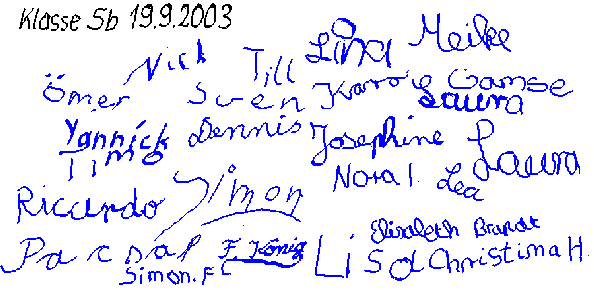 Klasse 5b 19.9.2003
Nick Till Lina Meike
Ömer Sven Karo Gamse
Laura
Yannick Dennis Josephine Laura
Timo
Simon Nora I. Lea
Ricardo
Elisabeth Brandt
Pacsal F. König Lisa Christima H.
Simon. F